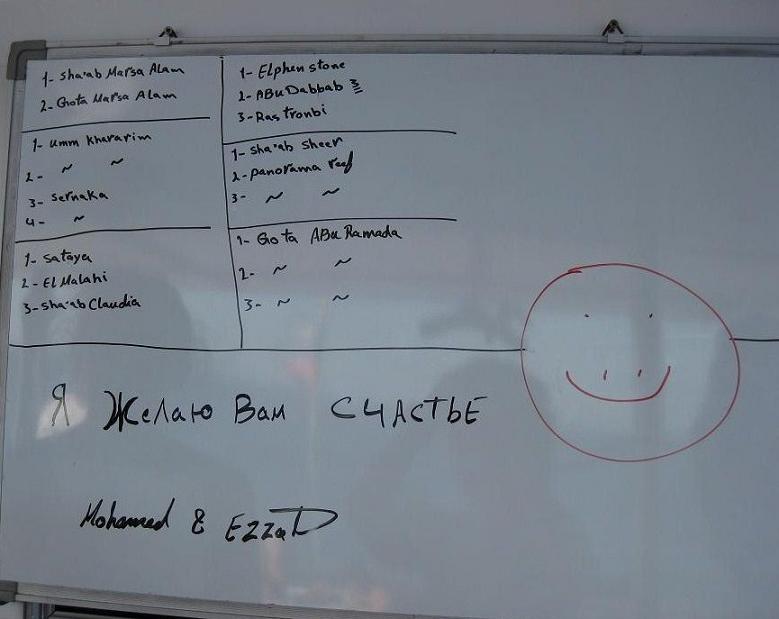 1- Sha'ab Marsa Alam
2- Gota Marsa Alam
1- Umm Khararim
2- ~ ~
3- Sernaka
4- ~
1- Sataya
2- El Malahi
3- Sha'ab Claudia
1- Elphenstone
2- ABu Dabbab 3
3- Ras Tronbi
1- Sha'ab Sheer
2- panorama reef
3- ~ ~
1- Gota ABu Ramada
2- ~ ~
3- ~ ~
Я Желаю Вам СЧАСТЬЕ
Mohamed & EzzaD